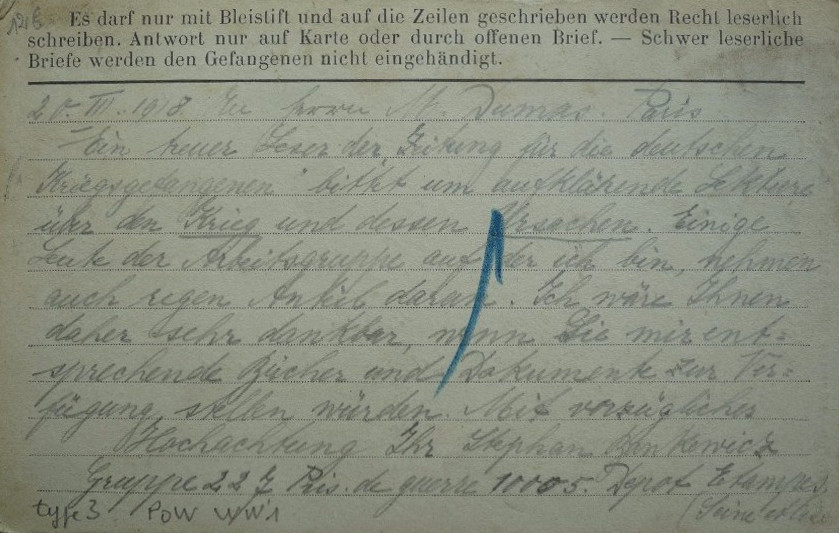 Es darf nur mit Bleistift und auf die Zeilen geschrieben werden Recht leserlich
schreiben. Antwort nur auf Karte oder durch offenen Brief. — Schwer leserliche
Briefe werden den Gefangenen nicht eingehändigt.
20. III. 1918. An Herrn M. Dumas. Paris
"Ein treuer Leser der Zeitung für die deutschen
Kriegsgefangenen" bittet um aufklärende Lektüre
über den Krieg und dessen Ursachen. Einige
Leute der Arbeitsgruppe auf der ich bin, nehmen
auch regen Anteil daran. Ich wäre Ihnen
daher sehr dankbar, wenn Sie mir ent=
sprechende Bücher und Dokumente zur Ver=
fügung stellen würden. Mit vorzüglicher
Hochachtung Ihr Stephan
Gruppe 227 Pris. de guerre 10005. Depot Etampes
(Seine et Oise
type 3 POW WW1